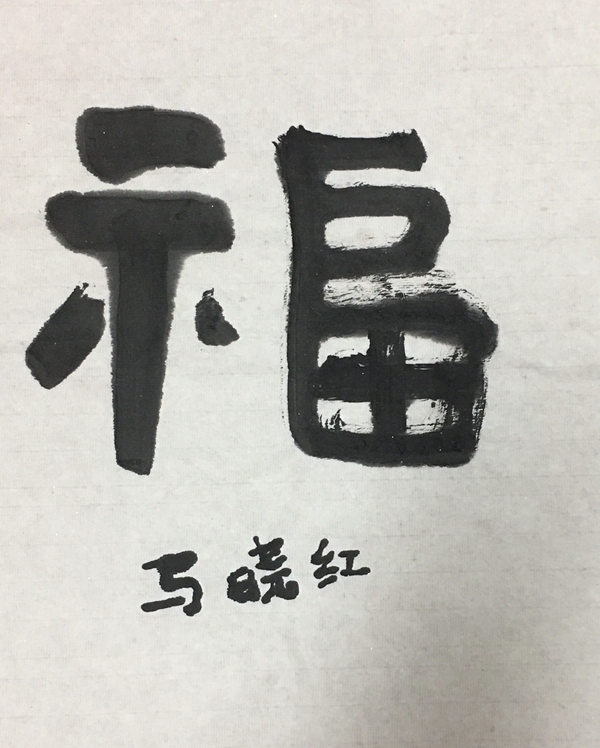 福
马晓红